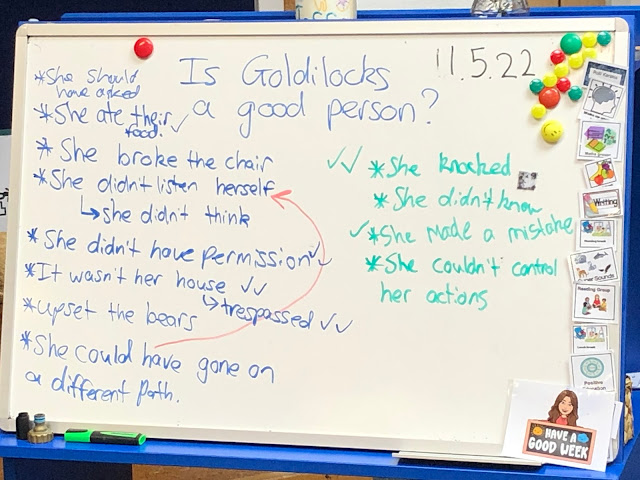 Is Goldilocks
a good person?
11.5.22
*She should
have asked
*She ate their
food. ✓
* She broke the chair
*She didn't listen herself
↳she didn't think
*She didn't have permission ✓✓
*It wasn't her house ✓✓
↳trespassed ✓✓
*upset the bears
*She could have gone on
a different path.
✓✓ *She knocked
*She didn't know
✓*She made a mistake
*She couldn't control
her actions
Writing
Reading Group
Positive
HAVE A
GOOD WEEK